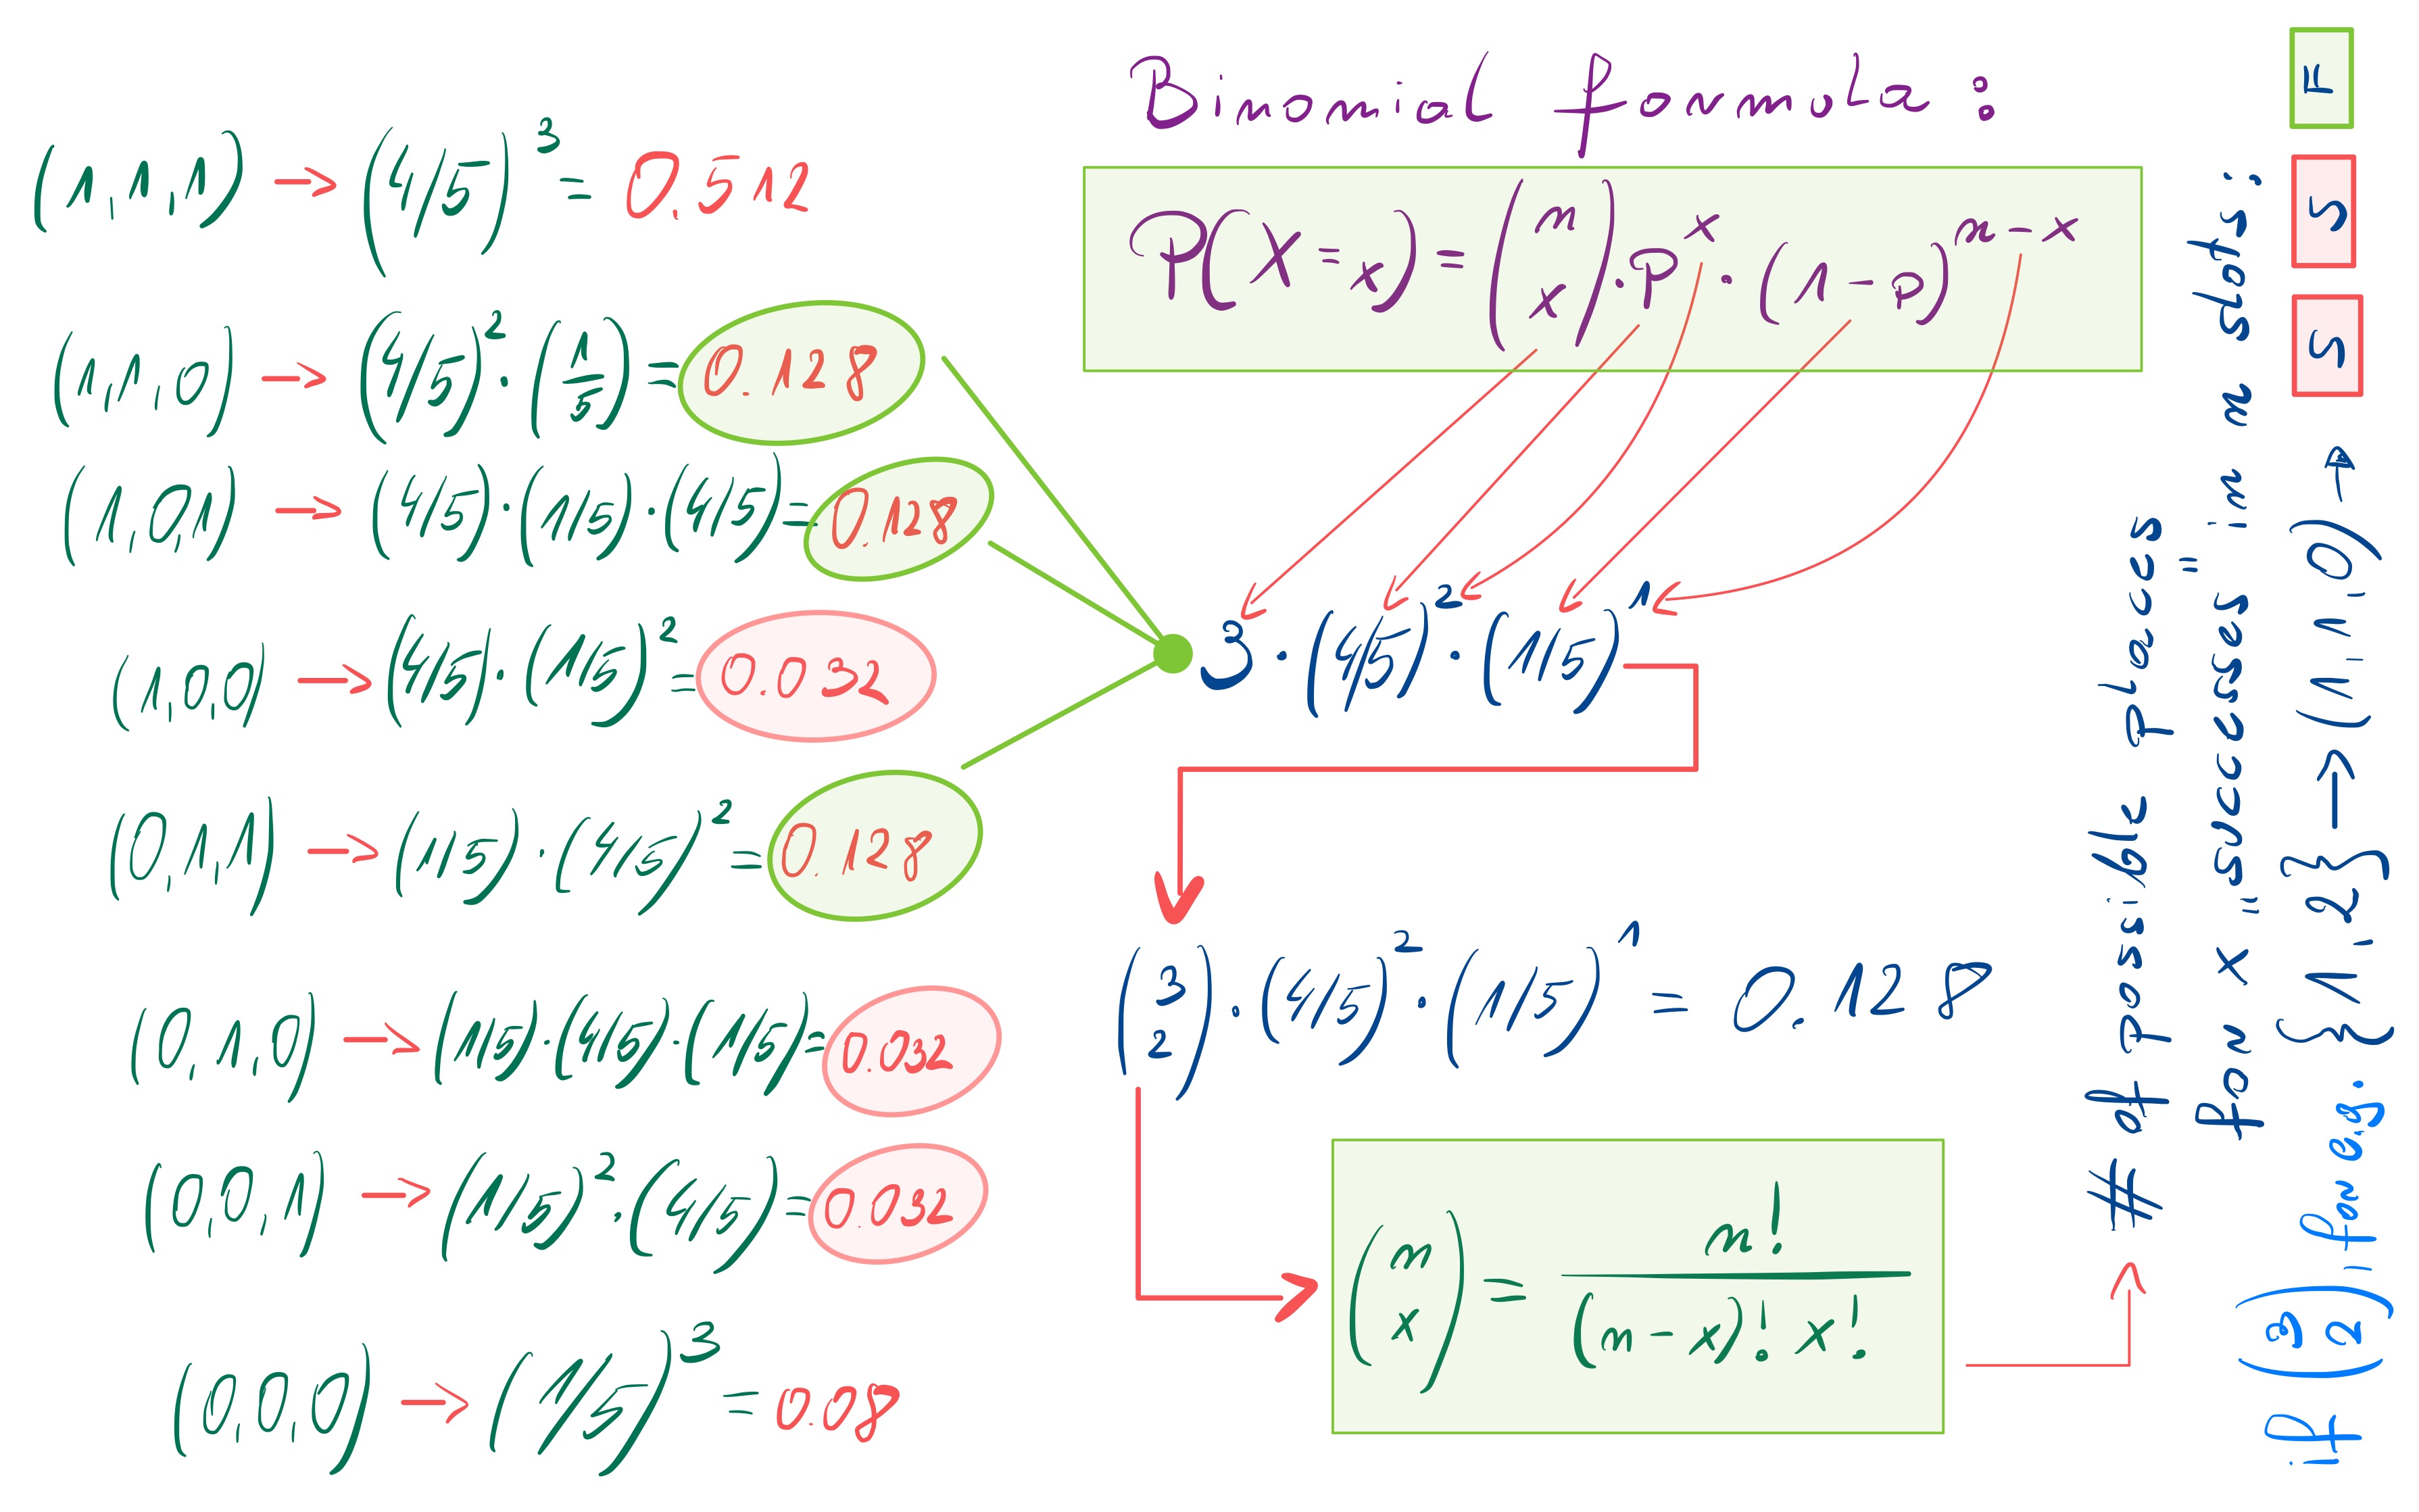 (1,1,1) → (4/5)^3 = 0.512
(1,1,0) → (4/5)^2 · (1/5) = 0.128
(1,0,1) → (4/5) · (1/5) · (4/5) = 0.128
(1,0,0) → (4/5) · (1/5)^2 = 0.032
(0,1,1) → (1/5) · (4/5)^2 = 0.128
(0,1,0) → (1/5) · (4/5) · (1/5) = 0.032
(0,0,1) → (1/5)^2 · (4/5) = 0.032
(0,0,0) → (1/5)^3 = 0.08
Binomial formula:
P(X = x) = (n x) · p^x · (1 - p)^n-x
3 · (4/5)^2 · (1/5)^1
(3 2) · (4/5)^2 · (1/5)^1 = 0.128
(n x) = n! / (n - x)! x!
# of possible places
for x "successes" in n slots:
if (3 2), for eg. {1,2} → (1,1,0) → S S F